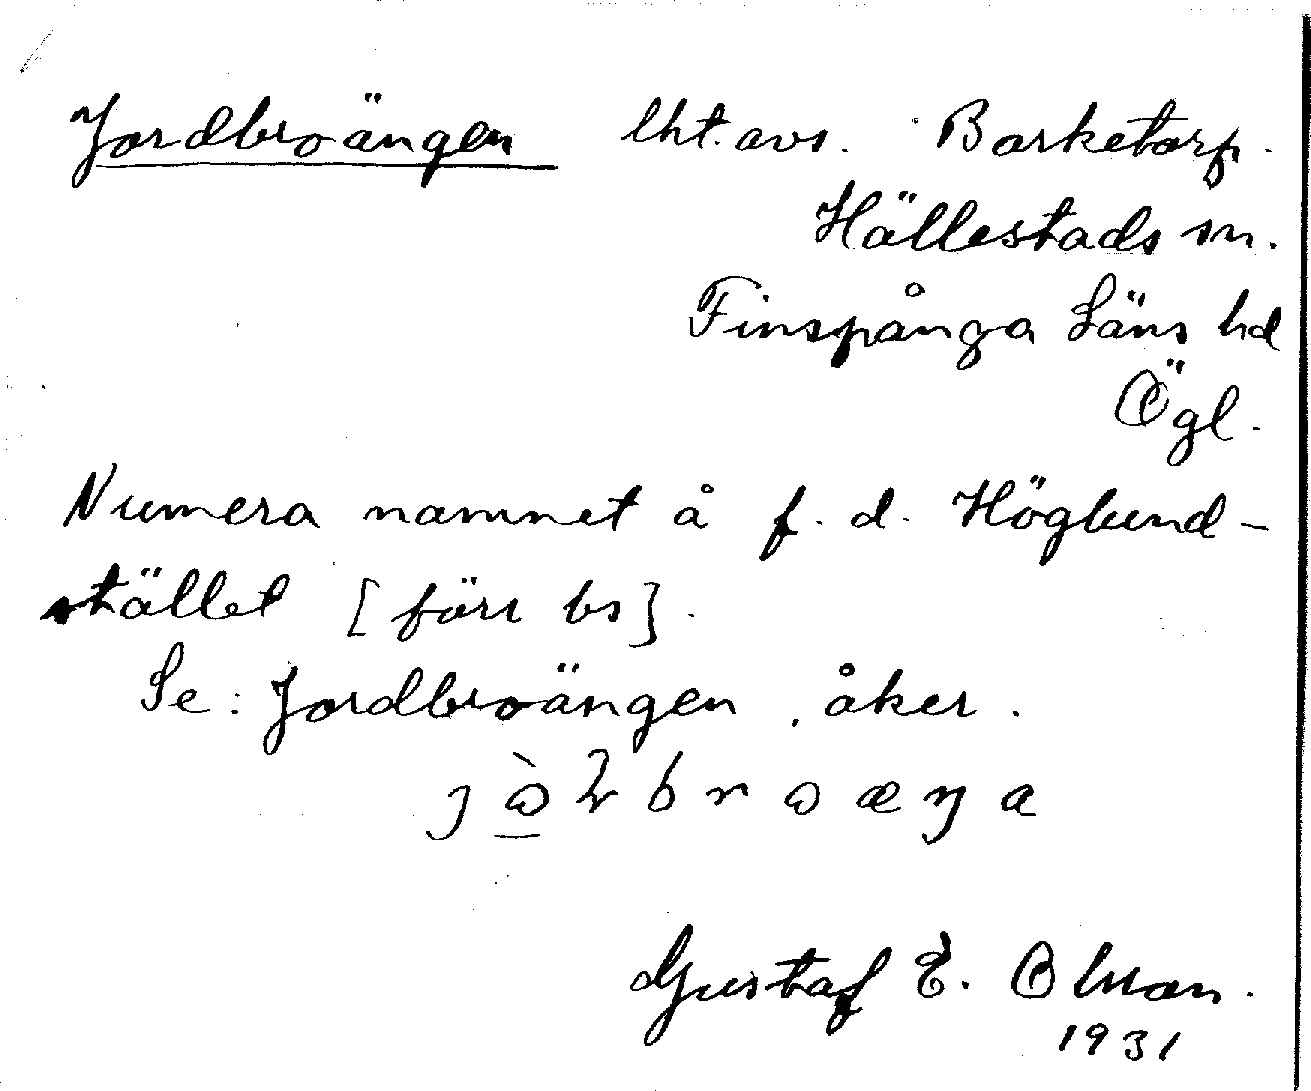 Jordbroängen lht. avs. Borketorp.
Hällestads sn.
Finspånga Läns hd
Ögl.
Numera namnet å f. d. Höglund-
stället [förr bs].
Se: Jordbroängen, åker.
Gustaf E. Olman.
1931